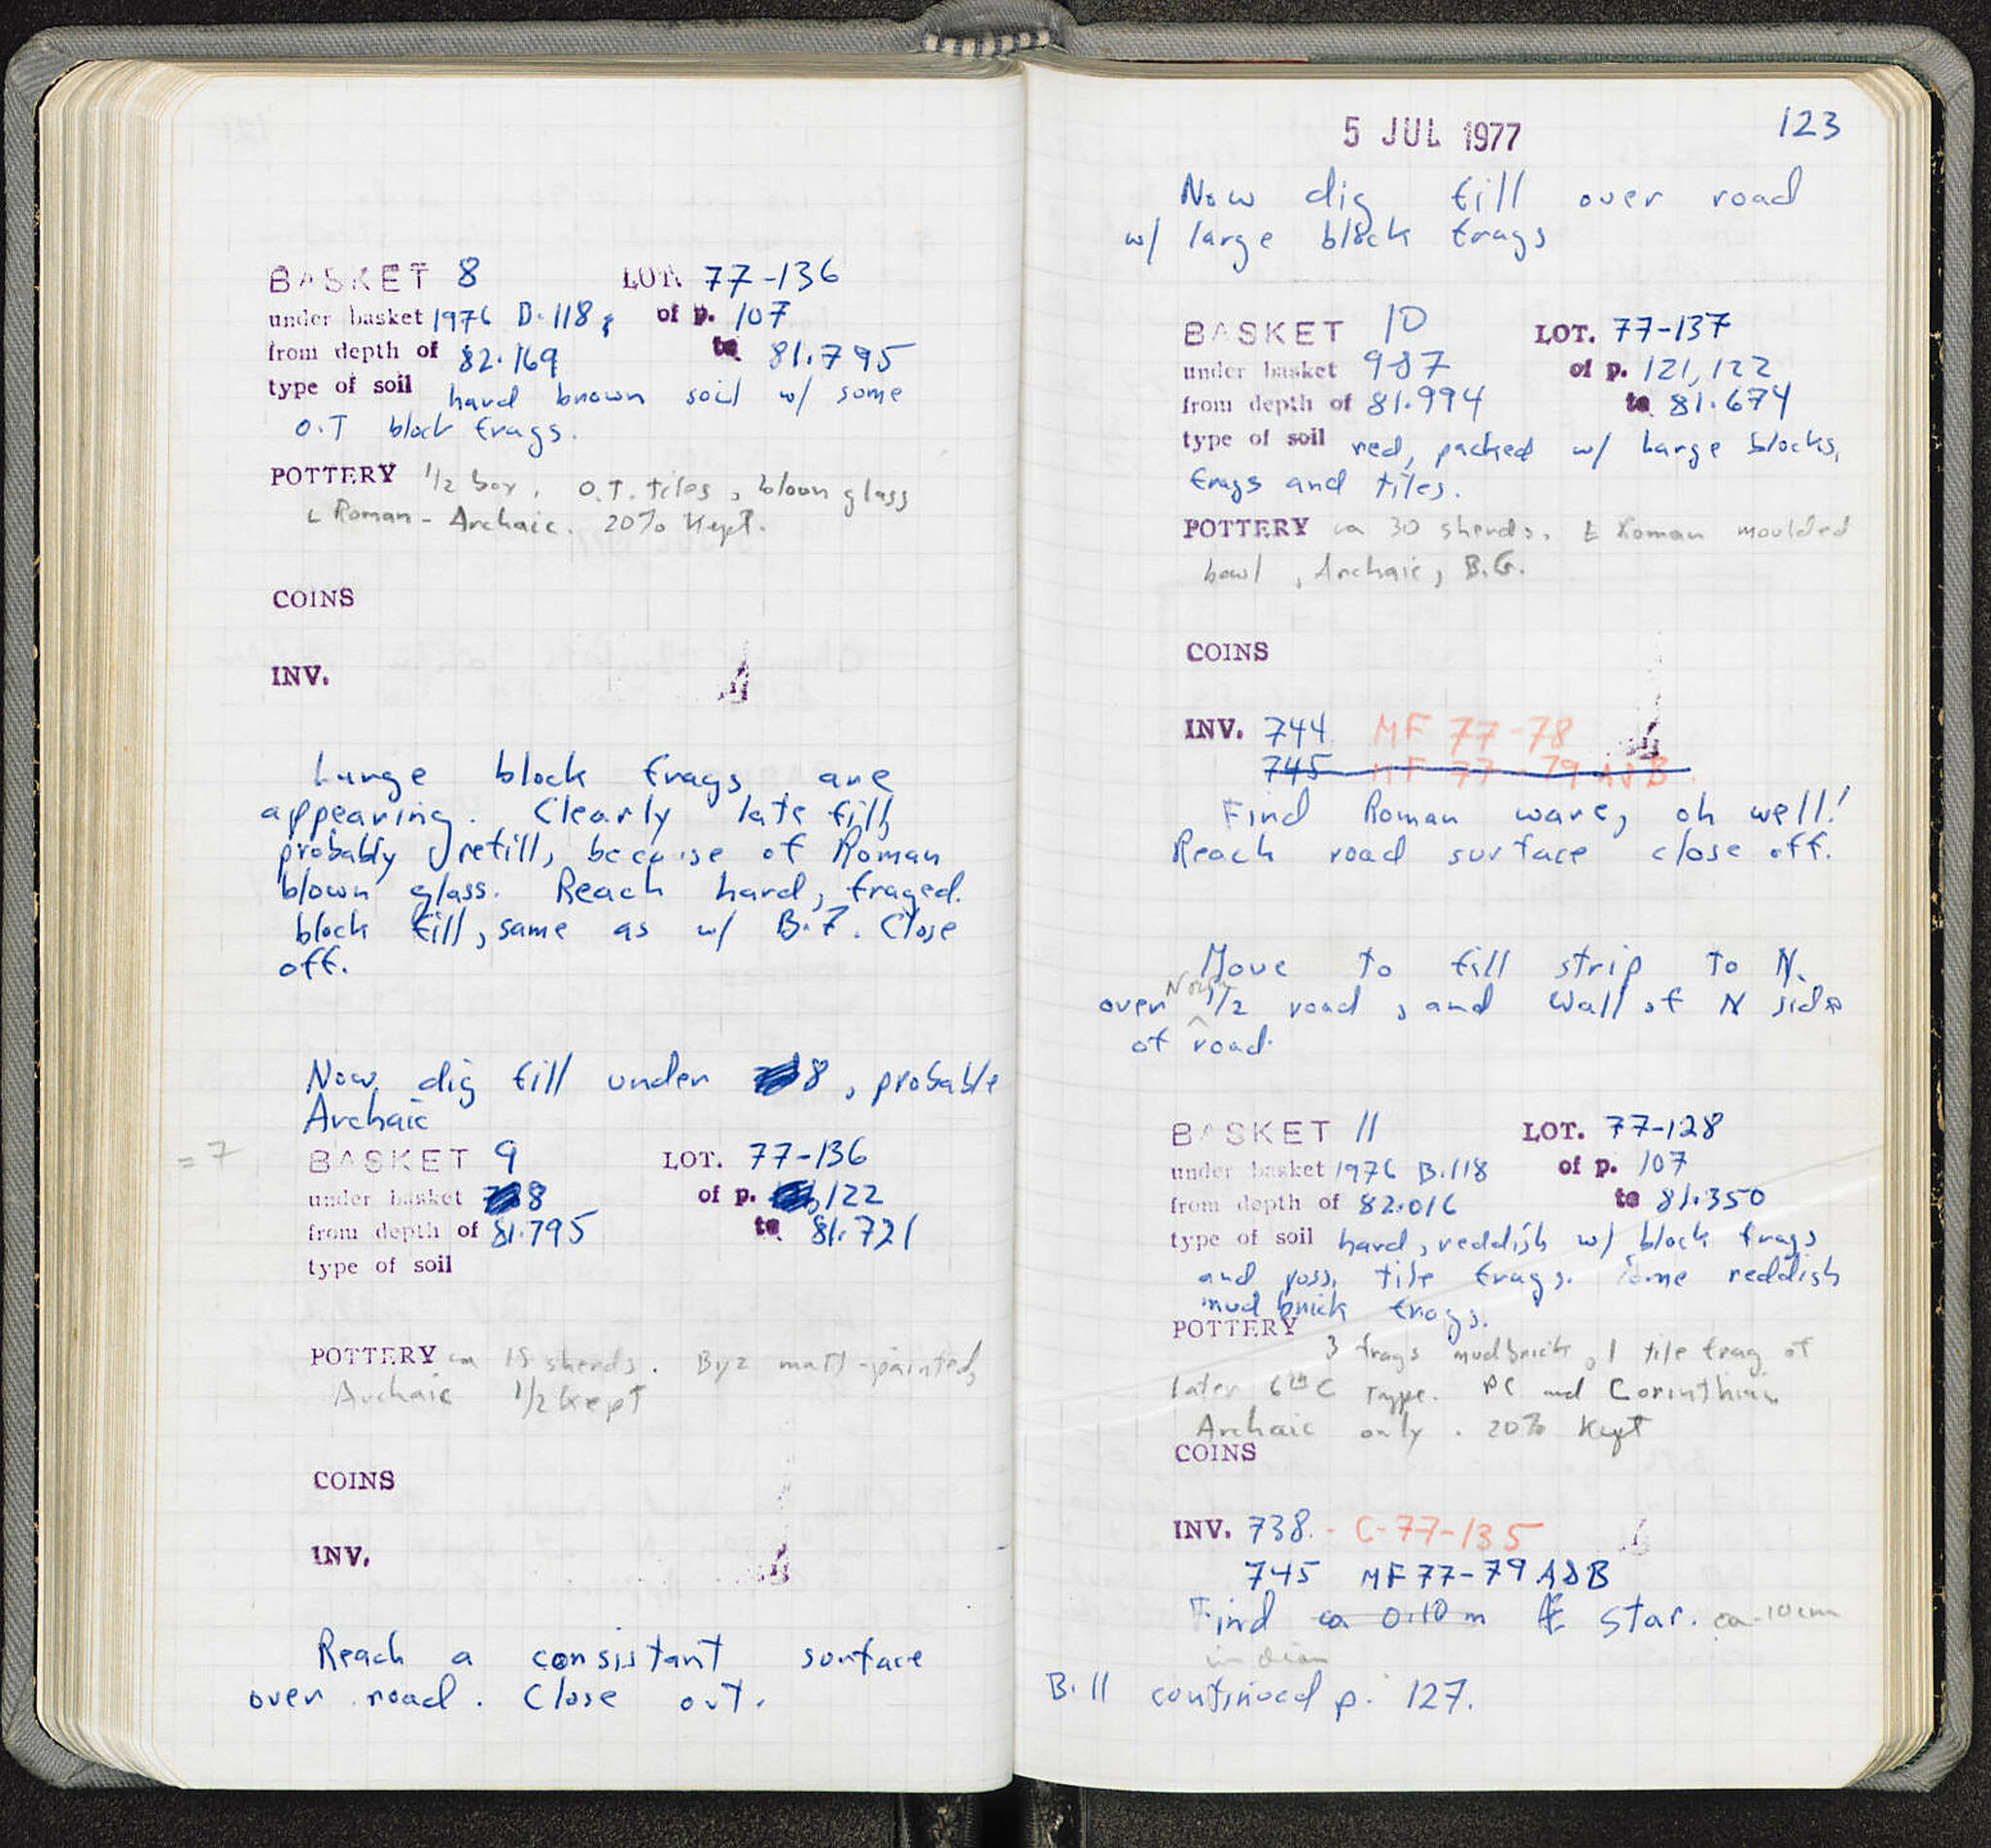 BASKET 8 LOT. 77-136
under basket 1976 B.118, of p. 107
from depth of 82.169 to 81.795
type of soil hard brown soil w/ some
O.T block frags.
POTTERY 1/2 box, O.T. tiles, blown glass
L Roman - Archaic. 20% Kept.
COINS
INV.
Large block frags are
appearing. Clearly late fill,
probably refill, because of Roman
blown glass. Reach hard, fraged.
block fill, same as w/ B.7. Close
off.
Now dig fill under 8, probable
Archaic
= 7 BASKET 9 LOT. 77-136
under basket 8 of p. 122
from depth of 81.795 to 81.721
type of soil
POTTERY ca 15 sherds. Byz matt-painted,
Archaic 1/2 Kept
COINS
INV.
Reach a consistant surface
over road. Close out.
5 JUL 1977 123
Now dig fill over road
w/ large block frags
BASKET 10 LOT. 77-137
under basket 9+87 of p. 121, 122
from depth of 81.994 to 81.674
type of soil red, packed w/ large blocks,
frags and tiles.
POTTERY ca 30 sherds. E Roman moulded
bowl, Archaic, B.G.
COINS
INV. 744 MF 77-78
745 MF 77-79 A&B
Find Roman ware, oh well!
Reach road surface close off.
Move to fill strip to N.
over North 1/2 road, and Wall of N side
of road.
BASKET 11 LOT. 77-128
under basket 1976 B.118 of p. 107
from depth of 82.016 to 81.350
type of soil hard, reddish w/ block frags
and poss. tile frags. Some reddish
mud brick frags.
POTTERY
3 frags mudbrick, 1 tile frag of
later 6th C Type. PC and Corinthian
Archaic only. 20% Kept
COINS
INV. 738. - C-77-135
745 MF 77-79 A&B
Find ca 0.10 m Æ star. ca 10cm
in diam
B.11 continued p. 127.